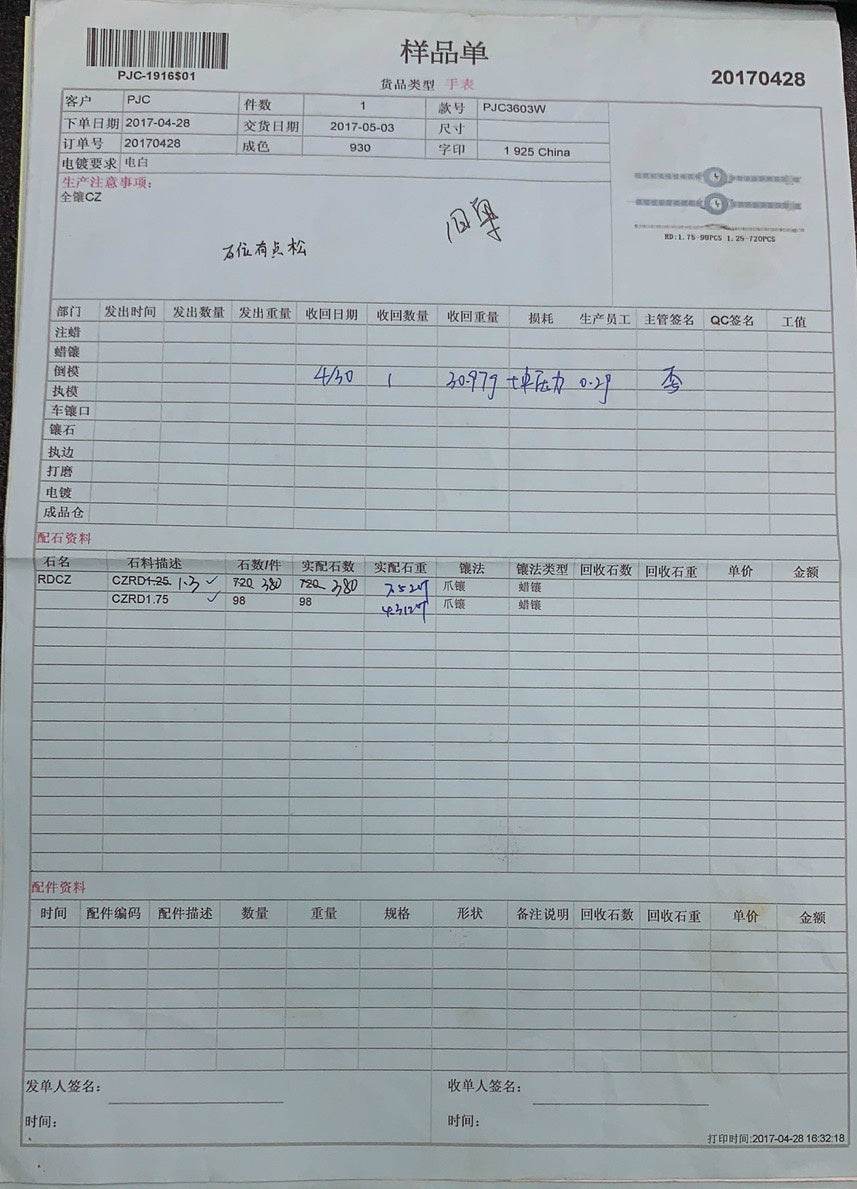 样品单
PJC-1916$01
货品类型 手表
20170428
客户 PJC 件数 1 款号 PJC3603W
下单日期 2017-04-28 交货日期 2017-05-03 尺寸
订单号 20170428 成色 930 字印 1 925 China
电镀要求 电白
生产注意事项:
全镶CZ
石位有点松
RD:1.75-98PCS 1.25-720PCS
部门 发出时间 发出数量 发出重量 收回日期 收回数量 收回重量 损耗 生产员工 主管签名 QC签名 工值
注蜡
蜡镶
倒模 4/30 1 30.97g 0.2g
执模
车镶口
镶石
执边
打磨
电镀
成品仓
配石资料
石名 石料描述 石数/件 实配石数 实配石重 镶法 镶法类型 回收石数 回收石重 单价 金额
RDCZ CZRD1.25 1.3 ✓ 720 380 720 380 爪镶 蜡镶
CZRD1.75 ✓ 98 98 爪镶 蜡镶
配件资料
时间 配件编码 配件描述 数量 重量 规格 形状 备注说明 回收石数 回收石重 单价 金额
发单人签名: 收单人签名:
时间: 时间:
打印时间:2017-04-28 16:32:18